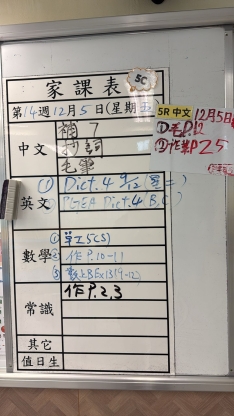 家課表
5C
第14週12月5日(星期五)
5R 中文 12月5日
中文
補 7
抄詞
毛筆
①書P.12
②作業P25
英文
① Dict. 4 9/12 (星二)
② PGEA Dict. 4 (B, C)
數學
① 單工5(S)
② 作P.10-11
③ 數上BEx13(9-12)
常識
作P.2,3
其它
值日生